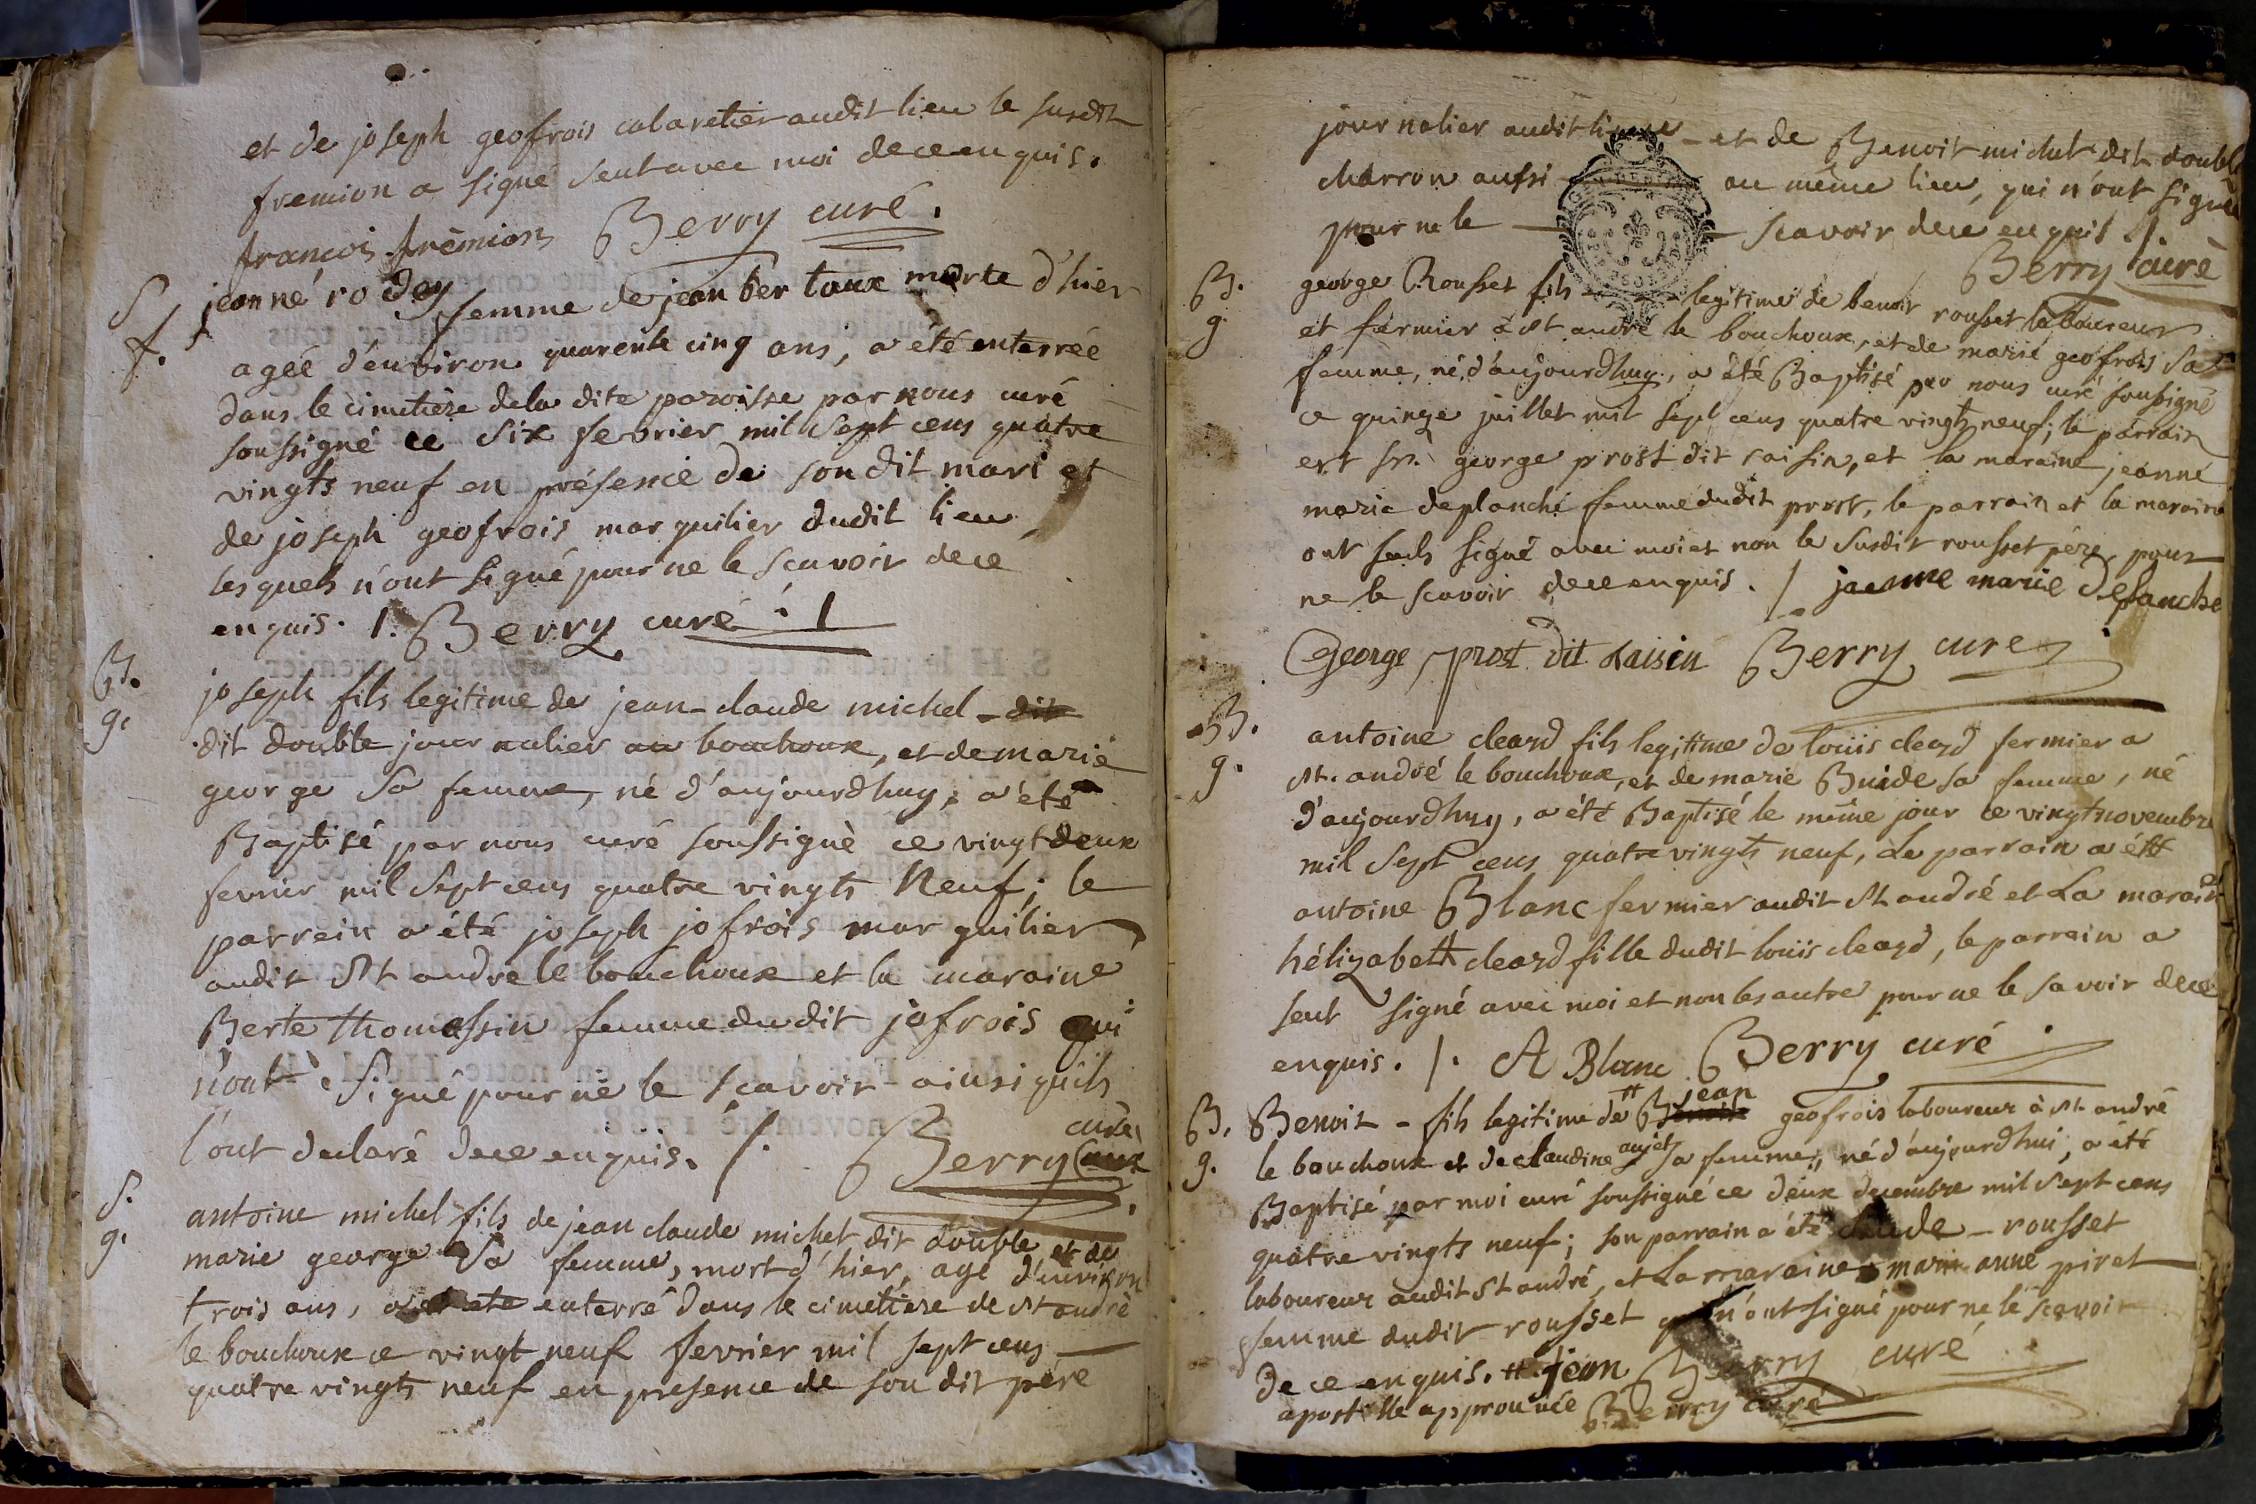 et de joseph geofrois cabaretier audit lieu le susdit
fremion a signé seul avec moi de ce enquis.
francois frèmion Berry curé.
S
f.
jeanné rodey femme de jean bertaux morte d'hier
ageé d'environ quarente cinq ans, a été enterreé
dans le cimetiere de la dite paroisse par nous curé
soussigné ce six fevrier mil sept cens quatre
vingts neuf en présence de son dit mari et
de joseph geofrois marguilier dudit lieu
lesquels n'ont signé pour ne le scavoir de ce
enquis. /. Berry curé /
B.
g.
joseph fils legitime de jean-claude michel - dit
dit double journalier au bouchoux, et de marié
george sa femme, né d'aujourdhuy, a été
Baptisé par nous curé soussigné ce vingt deux
fevrier mil sept cens quatre vingts Neuf; le
parrein a été joseph jofrois marguilier
audit St andre le bouchoux et la maraine
Berte thomassin femme dudit jofrois qui
n'ont signé pour ne le scavoir - ainsi quils
l'ont declaré de ce enquis. /. Berry curé
S.
g.
antoine michel fils de jean claude michel dit double et de
marie george sa femme, mort d'hier, agé d'environ
trois ans, a ete enterré dans le cimetiere de St andré
le bouchoux ce vingt neuf fevrier mil sept cens
quatre vingts neuf en presence de son dit pere
journalier audit lieu - et de Benoit michel dit double
charron aussi au même lieu, qui n'ont signé
pour ne le scavoir de ce enquis /.
Berry curè
B.
g.
george Rousset fils legitime de benoit rousset laboureur
et fermier a St andré le bouchoux, et de marie geofrois sa
femme, né d'aujourdhuy, a été Baptisé par nous curé soussigné
ce quinze juillet mil sept cens quatre vingts neuf; le parrain
est sr. george prost dit raisin, et la maraine jeanne
marie deplanche femme dudit prost, le parrain et la maraine
ont seuls signé avec moi et non le susdit rousset père, pour
ne le scavoir de ce enquis. / jaenne marie deplanche
George prost dit Raisin Berry cure
B.
g.
antoine cleard fils legitime de loüis cleard fermier a
St. andré le bouchoux, et de marie Buide sa femme, né
d'aujourdhuy, a été Baptisé le même jour ce vingt novembre
mil sept cens quatre vingts neuf, Le parrain a été
antoine Blanc fermier audit St andré et La maraine
hélizabeth cleard fille dudit loüis cleard, le parrein a
seul signé avec moi et non les autre pour ne le savoir de ce
enquis. /. A Blanc Berry curé
B.
g.
Benoit - fils legitime de # jean geofrois laboureur à St andré
le bouchoux et de claudine sa femme, né d'aujourdhui, a été
Baptisé par moi curé soussigné ce deux decembre mil sept cens
quatre vingts neuf; son parrain a été claude - rousset
laboureur audit St andré, et La maraine marie anne piret
femme dudit rousset qui n'ont signé pour ne le scavoir
de ce enquis. # jean Berry curé
apostille approuvée Berry curé